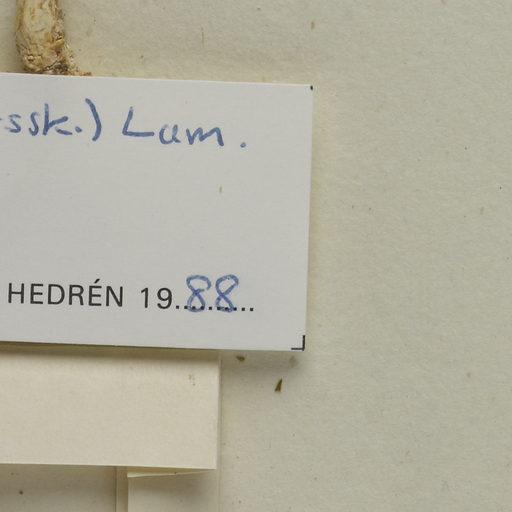 ssk.) Lam.
HEDRÉN 19..88..